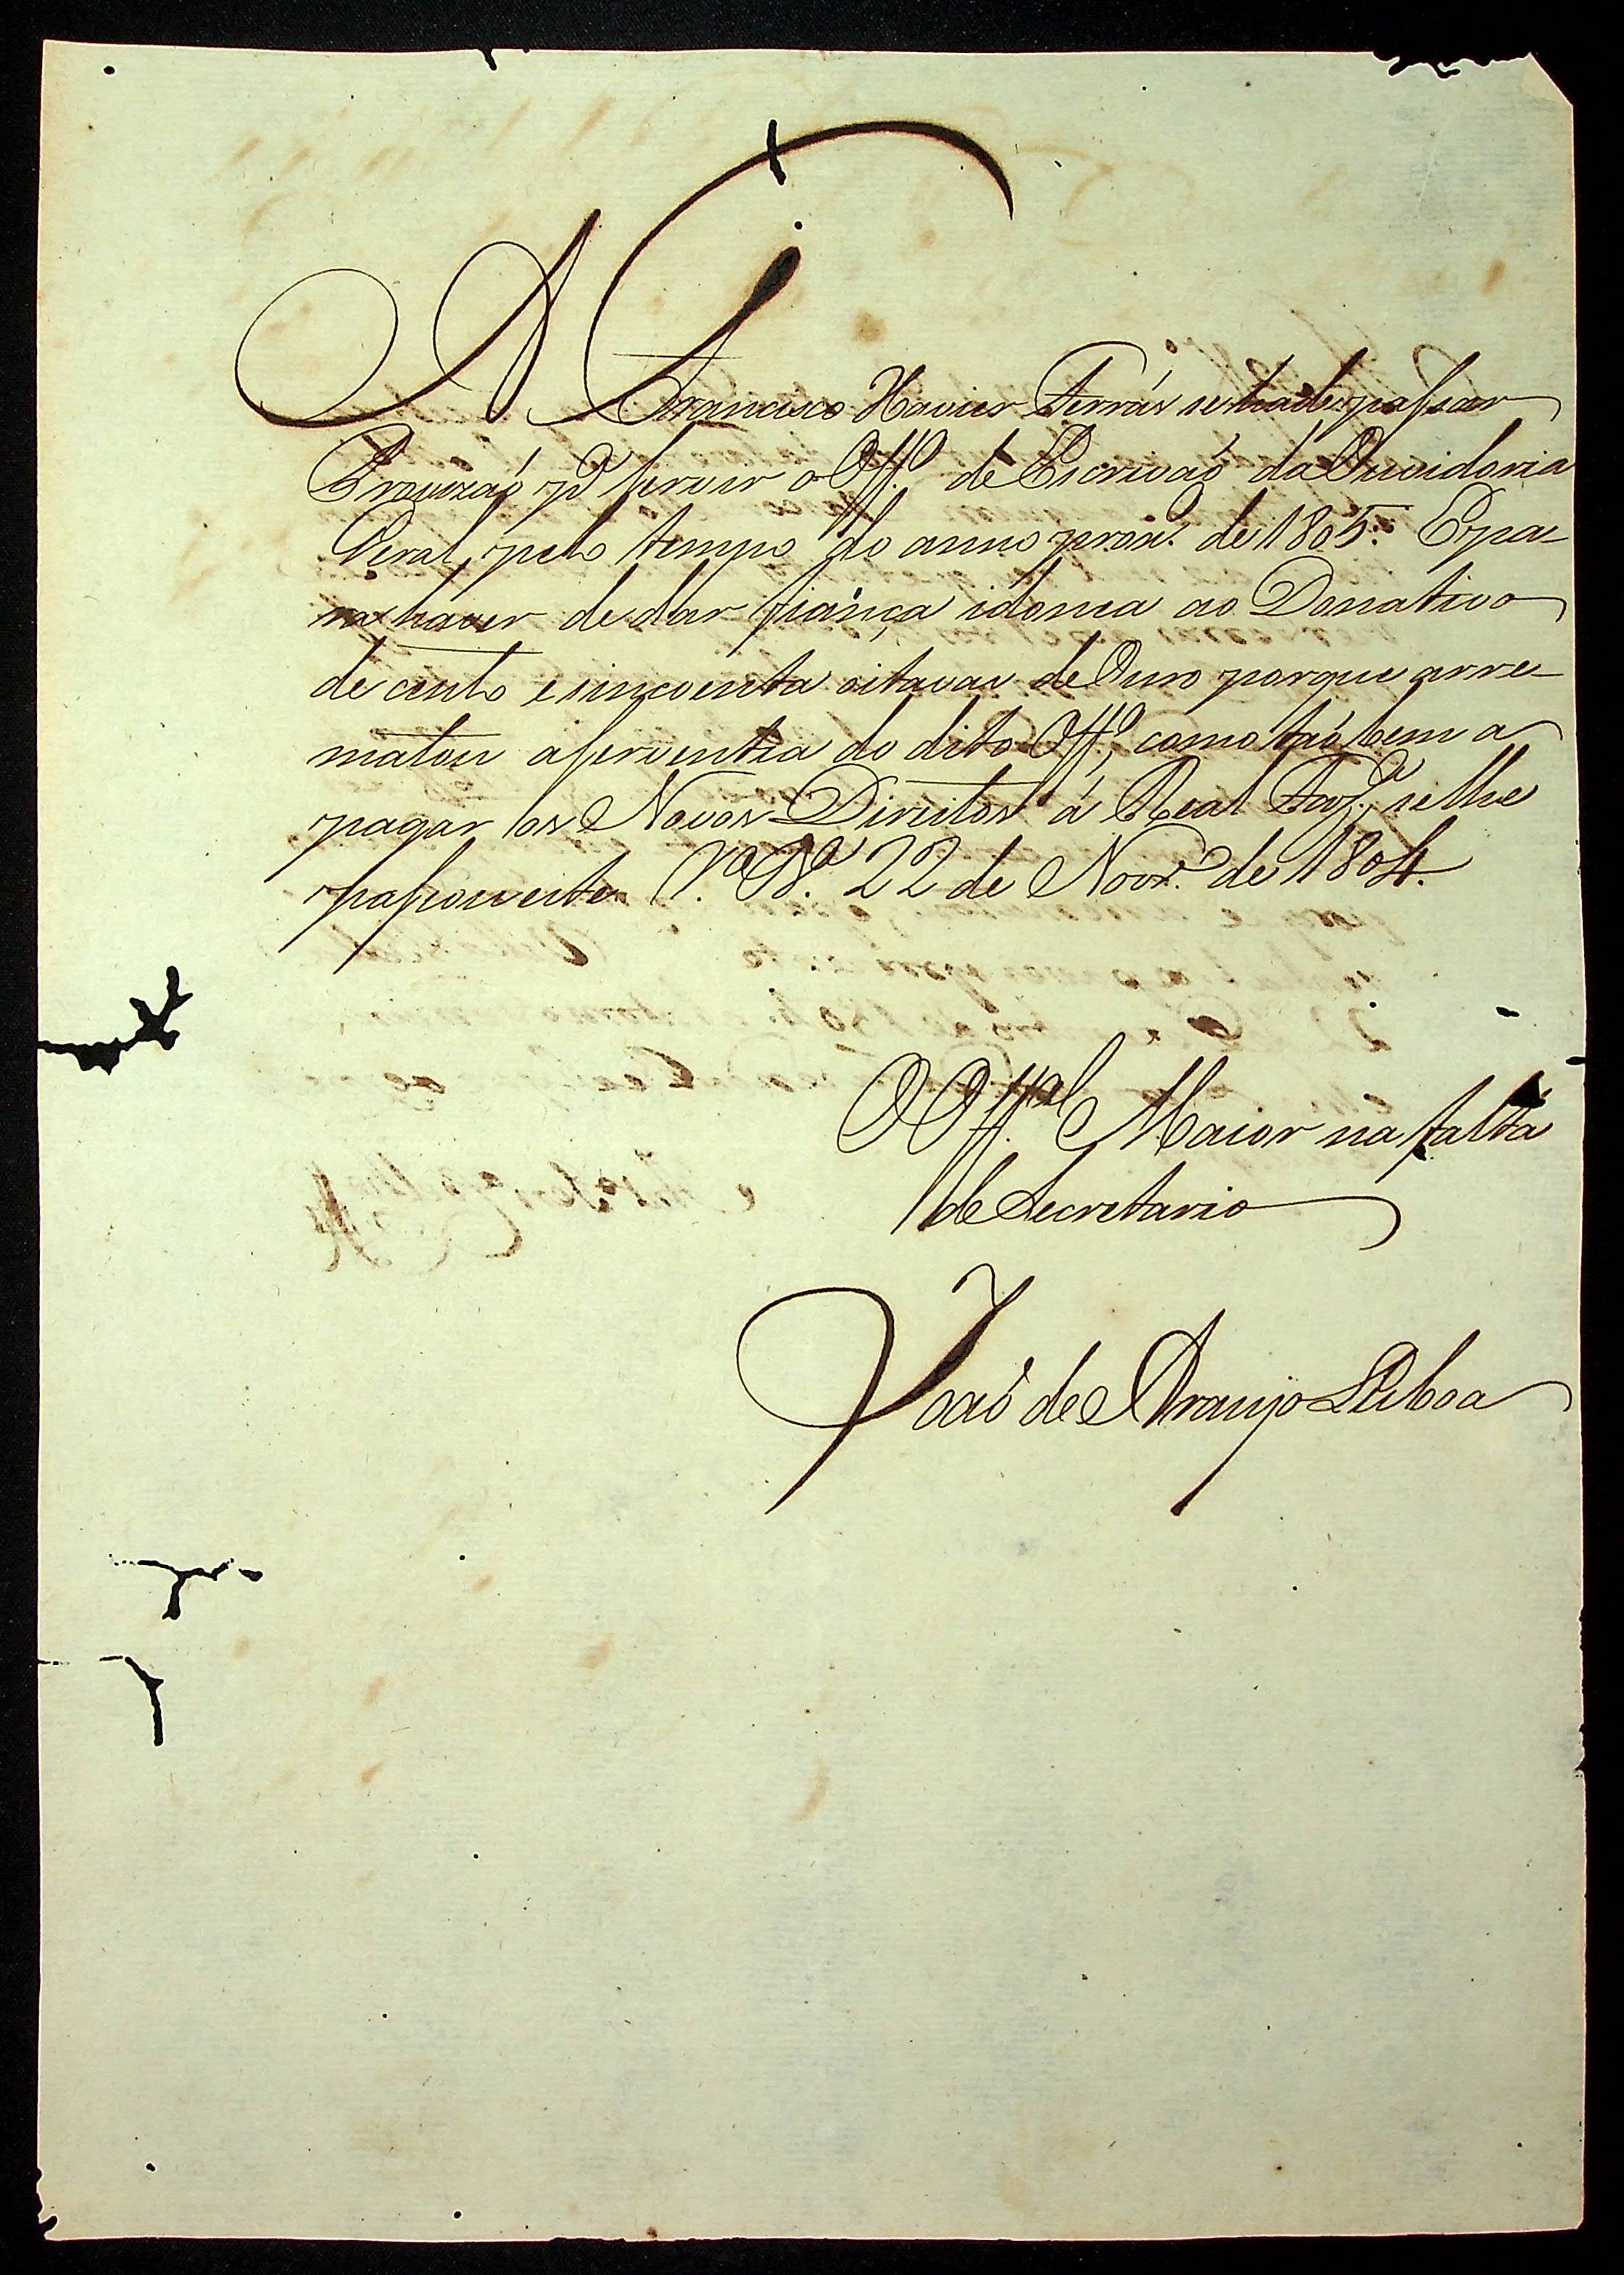 A Francisco Xavier Ferrás se há de passar
Provizaõ p.ª servir o Off.º de Escrivaõ da Ouvidoria
Geral, pelo tempo do anno prox.º de 1805. E pa-
ra haver de dar fiança idonea ao Donativo
de cento e sincoenta oitavas de Ouro porque arre-
matou a serventia do dito Off.º, como taõ bem a
pagar os Novos Direitos á Real Faz.ª, se lhe
passou este. V.ª B.ª 22 de Novr.º de 1804.
O Off.al Maior na falta
de Secretario
Joaõ de Araujo Lisboa